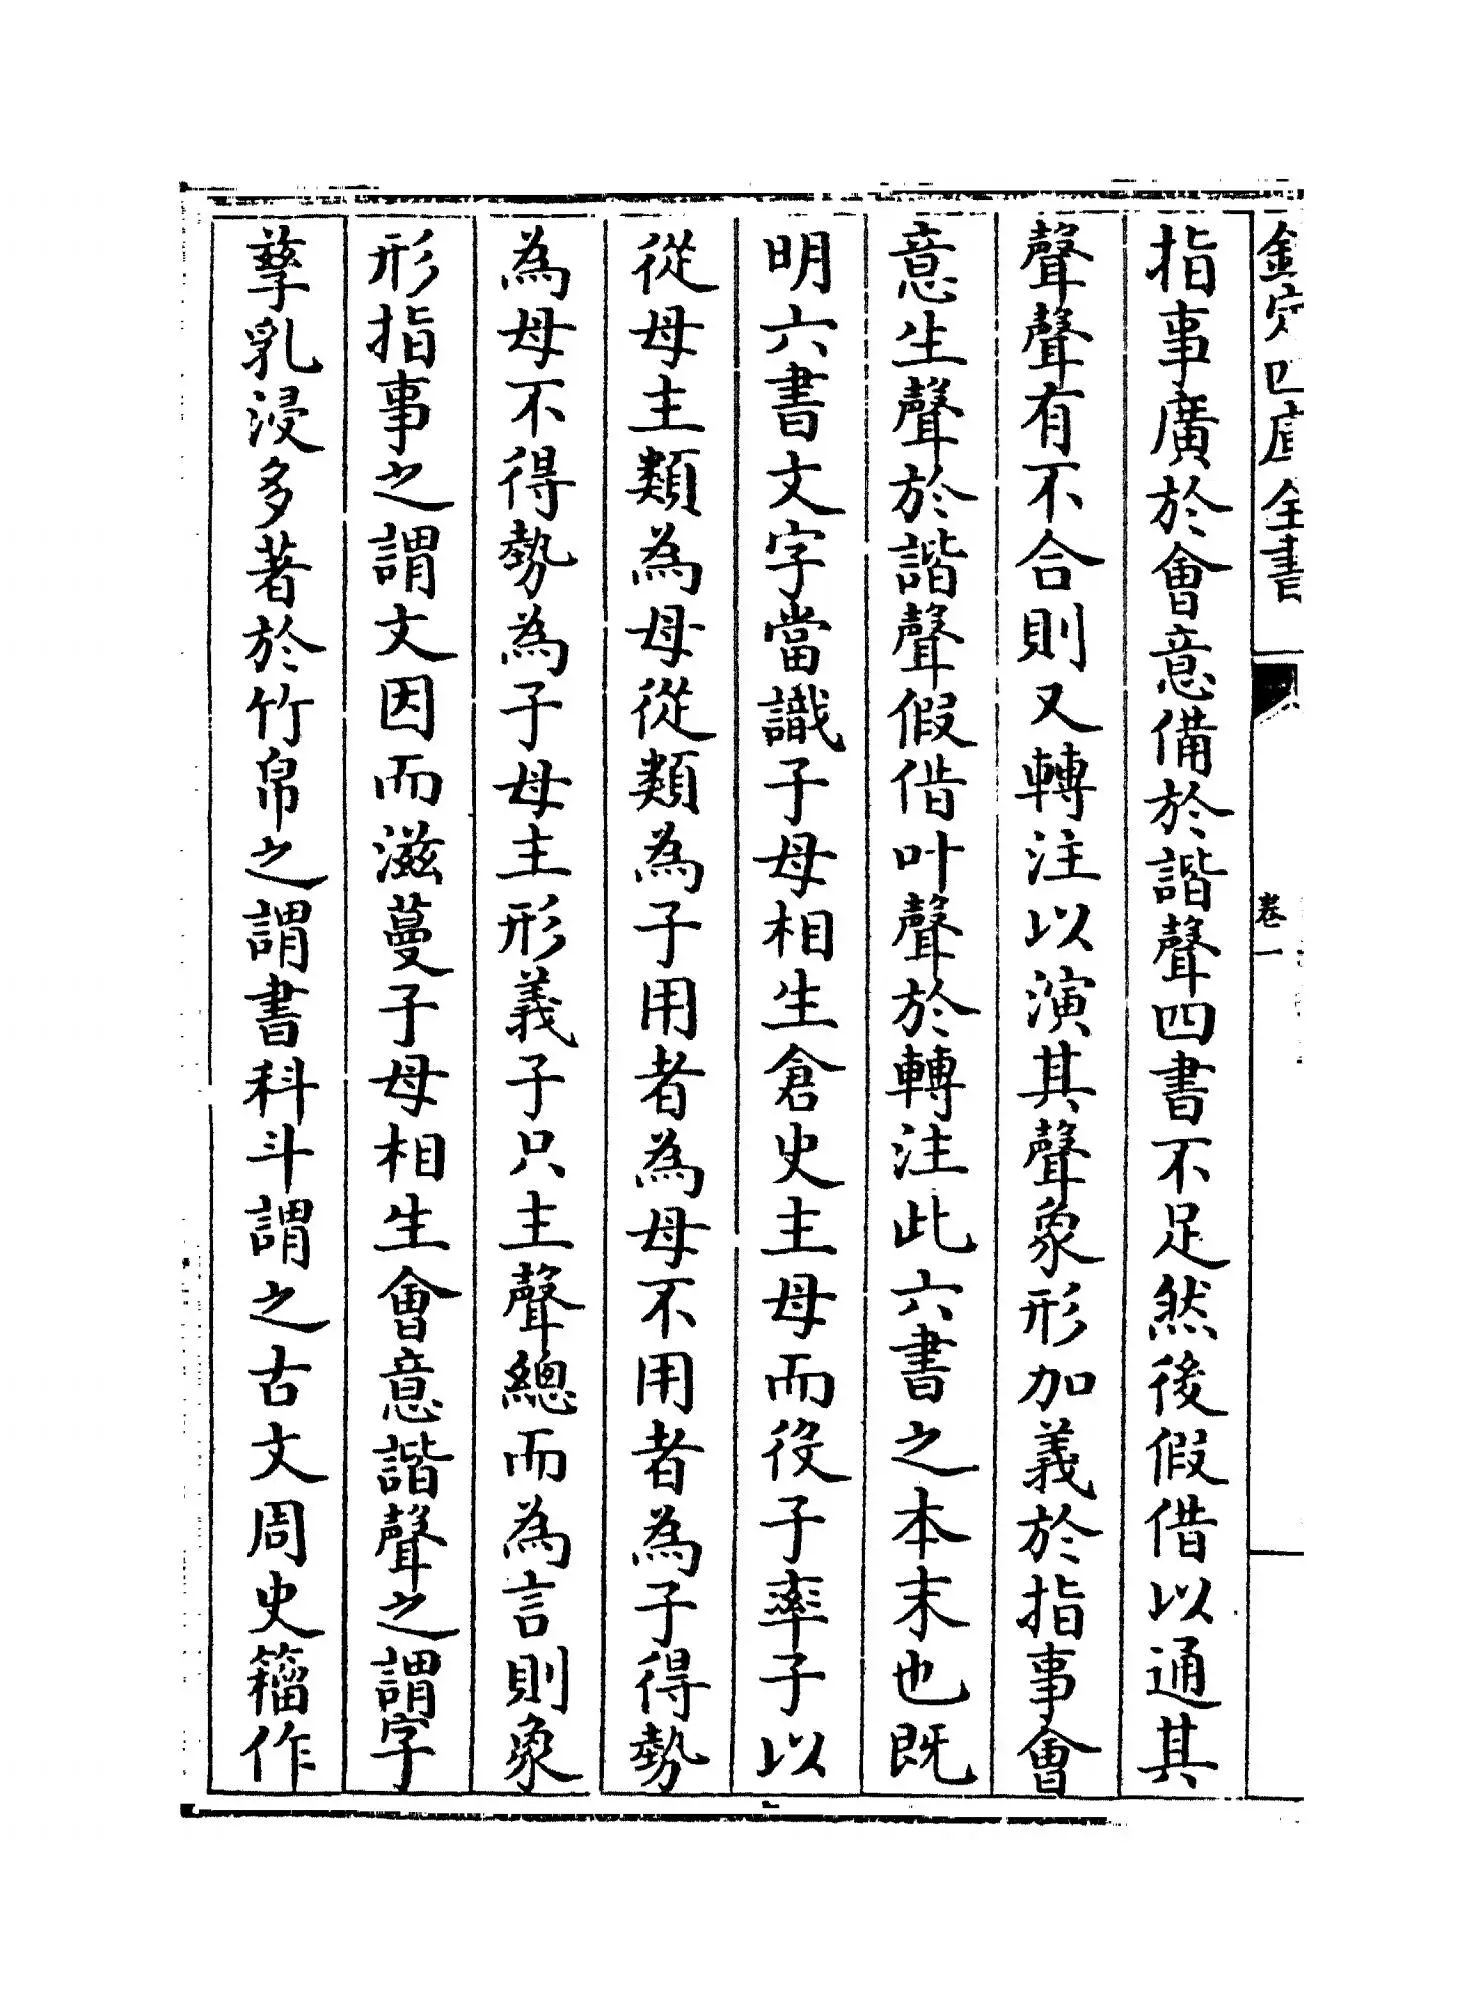 欽定四庫全書
卷一
指事廣於會意備於諧聲四書不足然後假借以通其
聲聲有不合則又轉注以演其聲象形加義於指事會
意生聲於諧聲假借叶聲於轉注此六書之本末也既
明六書文字當識子母相生倉史主母而役子率子以
從母主類為母從類為子用者為母不用者為子得勢
為母不得勢為子母主形義子只主聲總而為言則象
形指事之謂文因而滋蔓子母相生會意諧聲之謂字
孳乳浸多著於竹帛之謂書科斗謂之古文周史籀作